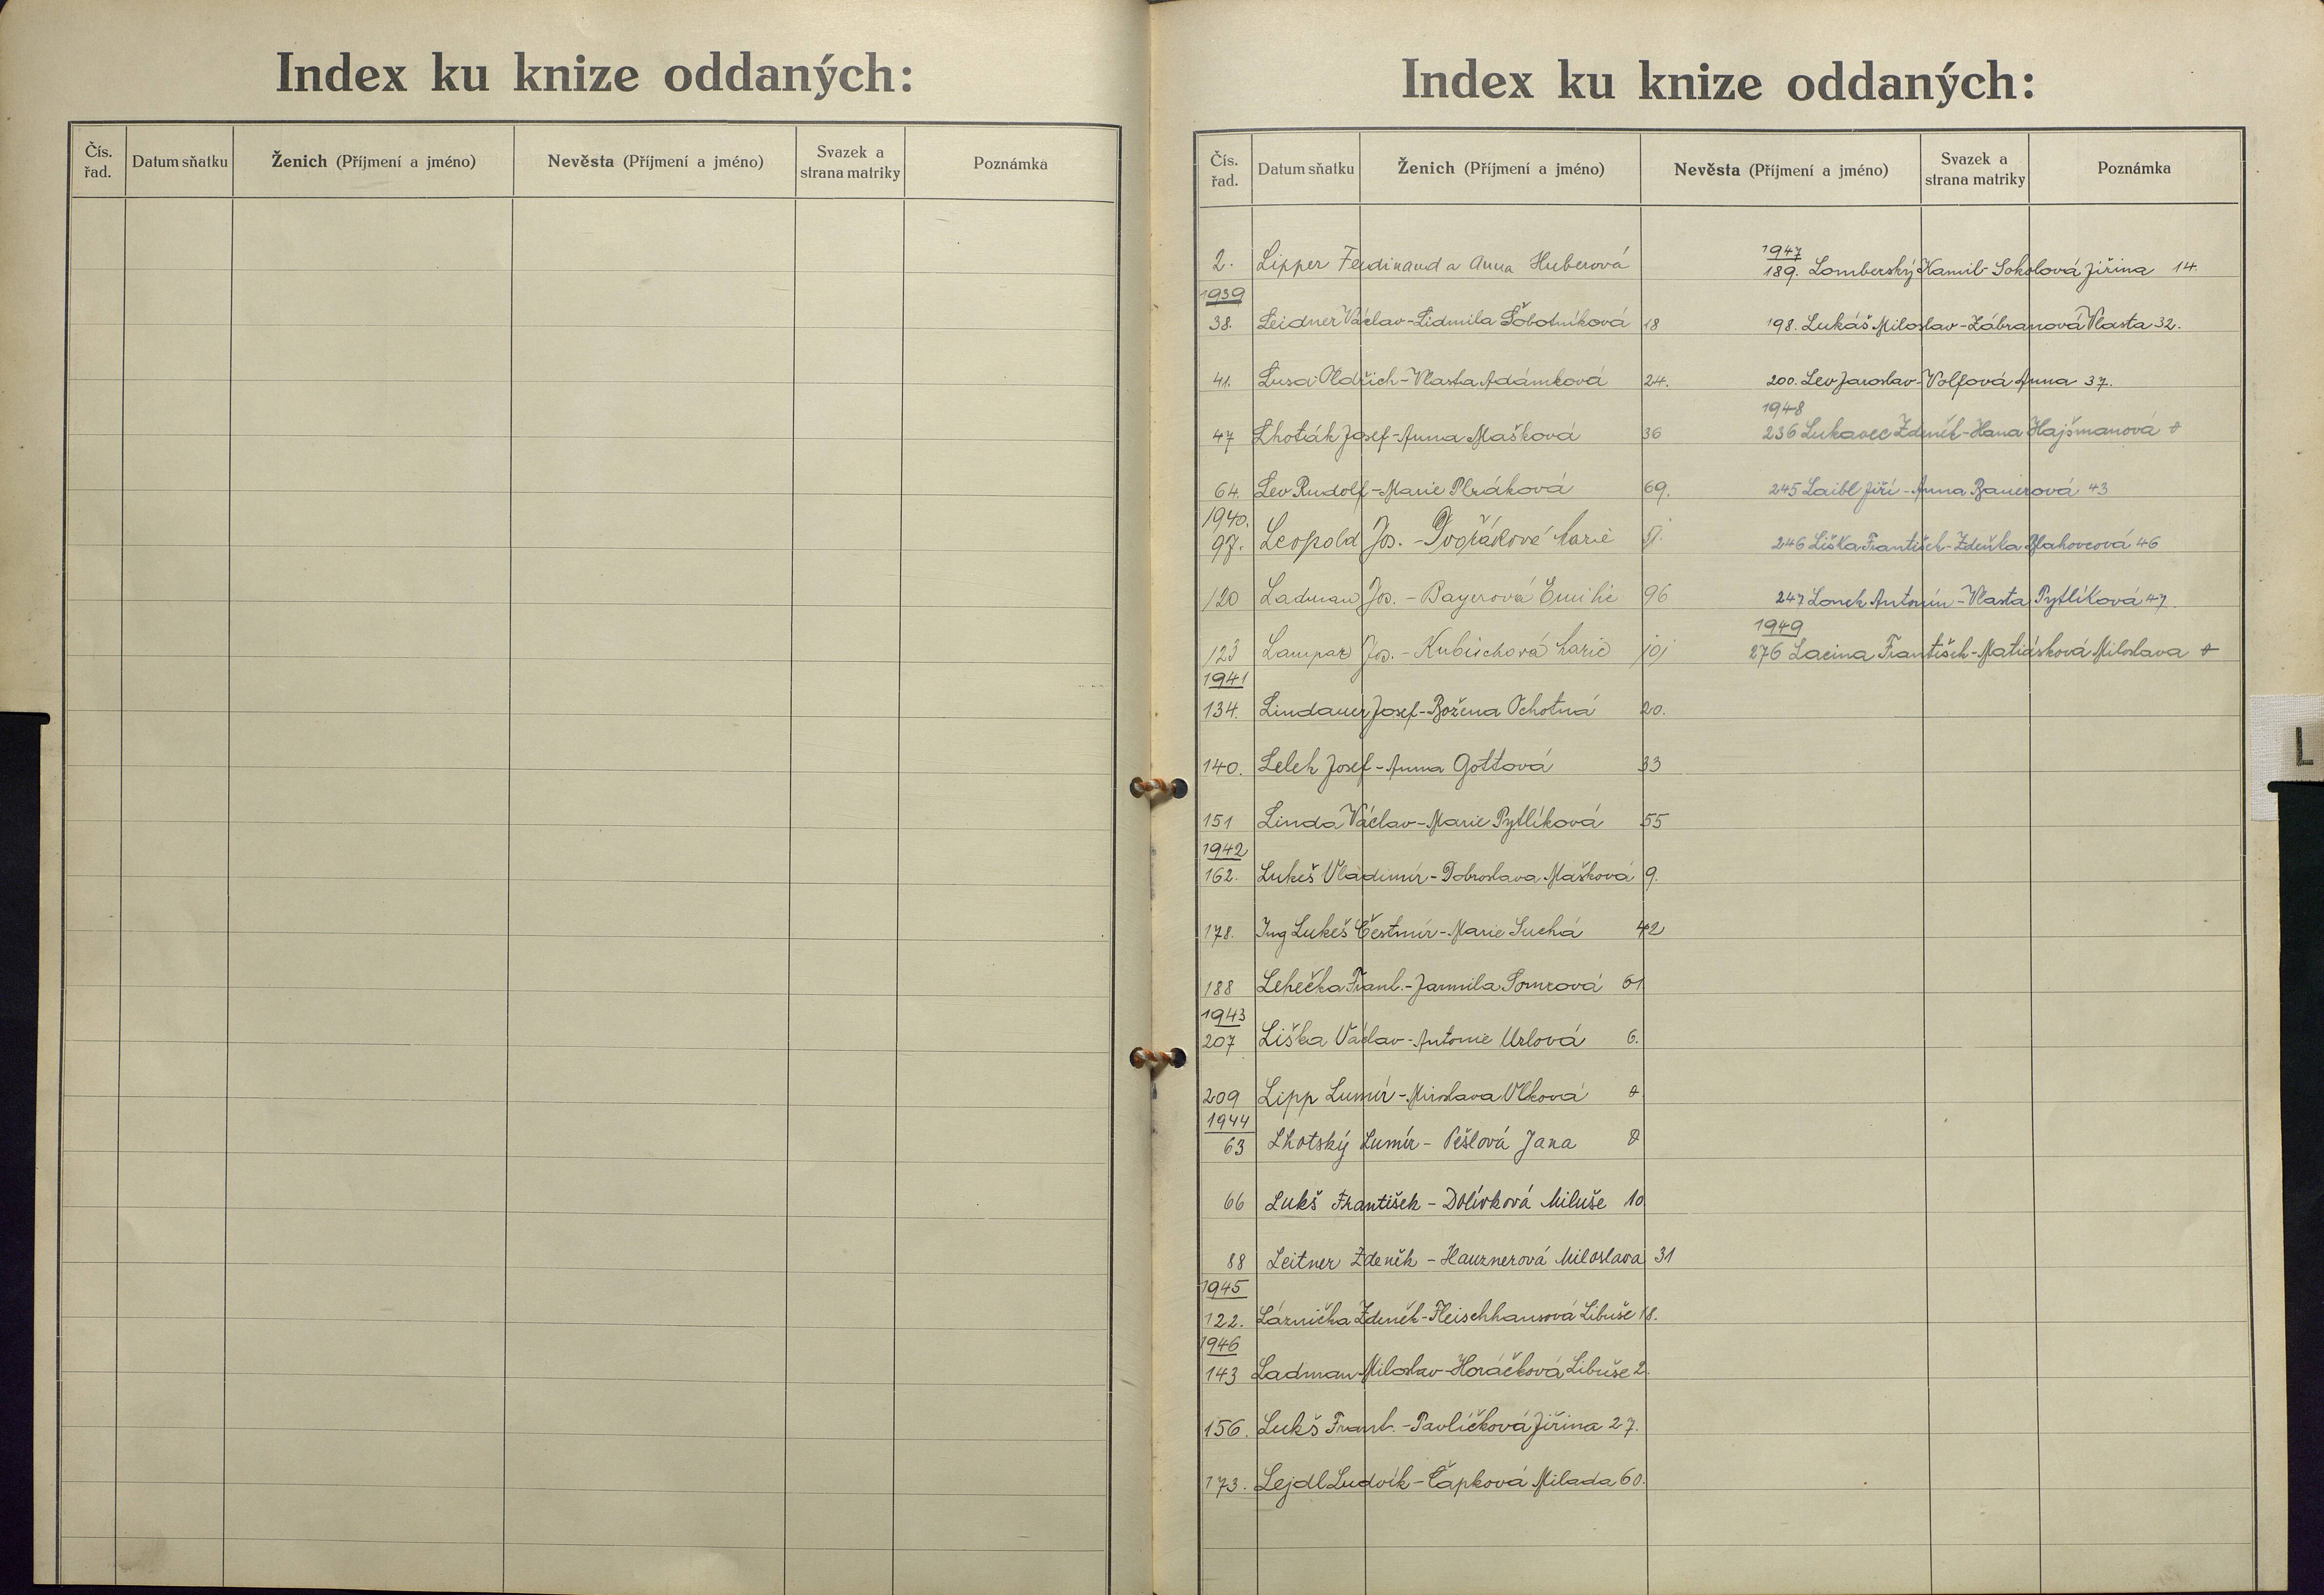 Index ku knize oddaných:
Čís. řad. Datum sňatku Ženich (Příjmení a jméno) Nevěsta (Příjmení a jméno) Svazek a strana matriky Poznámka
Index ku knize oddaných:
Čís. řad. Datum sňatku Ženich (Příjmení a jméno) Nevěsta (Příjmení a jméno) Svazek a strana matriky Poznámka
2. Lipper Ferdinand a Anna Huberová
1939
38. Leidner Václav - Lidmila Šobotníková 18
41. Lusa Oldřich - Vlasta Adámková 24.
47 Lhoták Josef - Anna Mašková 36
64. Lev Rudolf - Marie 69.
1940.
97. Leopold Jos. - Dvořákové Marie
120 Ladman Jos. - Bayerová Emilie 96
123 Lampar Jos. - Kubischová Marie 101
1941
134. Lindauer Josef - Božena Ochotná 20.
140. Lelek Josef - Anna Gottová 33
151 Linda Václav - Marie Pytlíková 55
1942
162. Lukeš Vladimír - Dobroslava Mašková 9.
178. Ing Lukeš Čestmír - Marie Suchá 42
188 Lehečka Frant. - Jarmila 61
1943
207 Liška Václav - Antonie Urlová 6.
209 Lipp Lumír - Miroslava Vlková
1944
63 Lhotský Lumír - Pešlová Jana 8
66 Lukš František - Dolívková Miluše 10
88 Leitner Zdeněk - Hauznerová Miloslava 31
1945
122. Láznička Zdeněk - Fleischhansová Libuše 18.
1946
143 Ladman Miloslav - Horáčková Libuše 2.
156. Lukš Frant. - Pavlíčková Jiřina 27.
173. Lejdl Ludvík - Čapková Milada 60.
1947
189. Lomberský Kamil - Sokolová Jiřina 14.
198. Lukáš Miloslav - Zábranová Vlasta 32.
200. Lev Jaroslav - Volfová Anna 37.
1948
236 Lukavec Zdeněk - Hana Hajšmanová
245 Laibl Jiří - Anna Bauerová 43
246 Liška František - Zdeňka Blahovcová 46
247 Lonek Antonín - Vlasta Pytlíková 47.
1949
276 Lacina František - Matiásková Miloslava
L